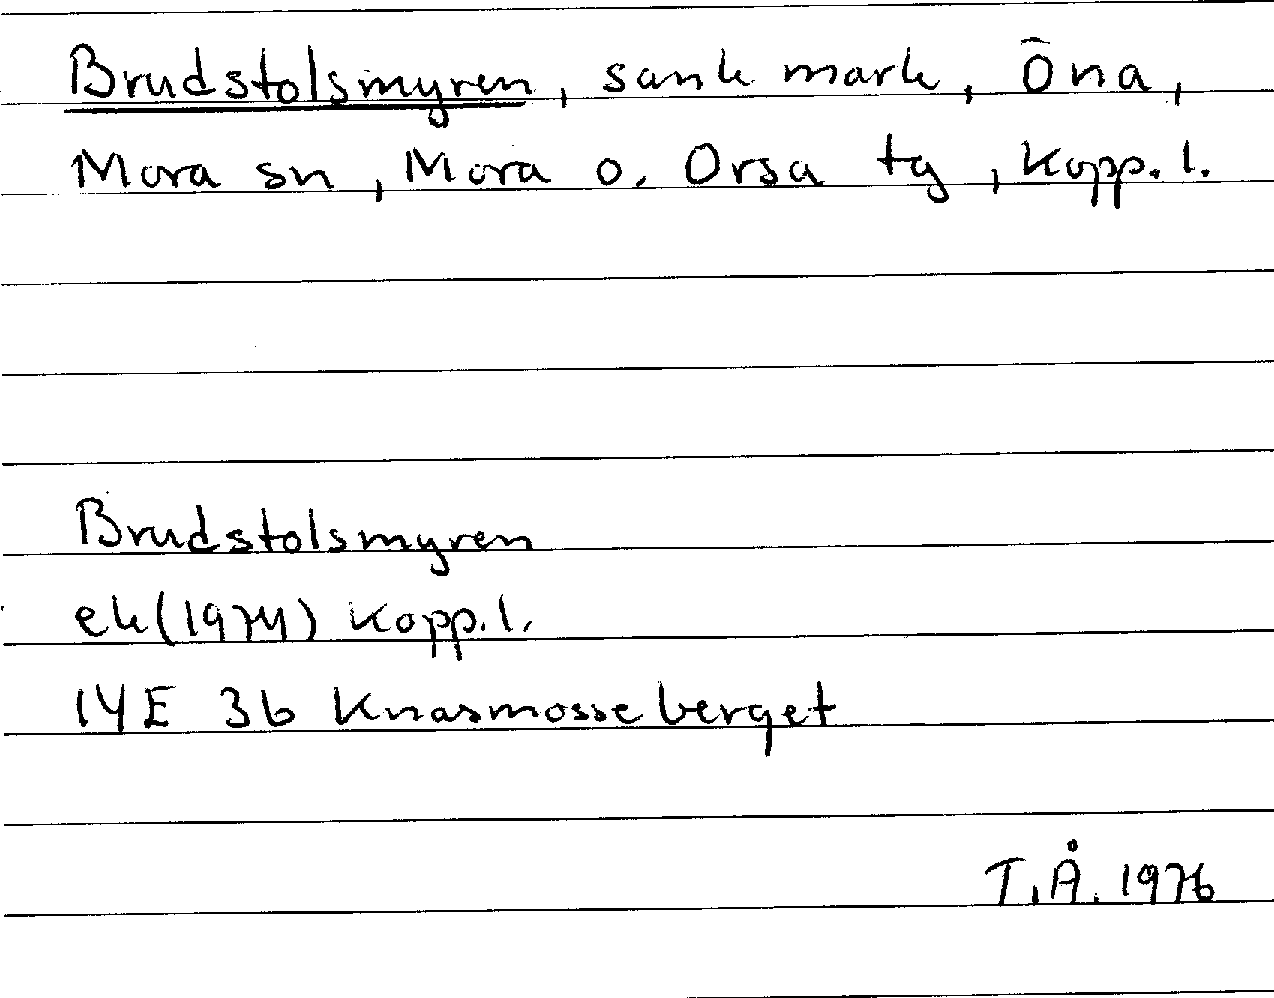 Brudstolsmyren, sank mark, Öna,
Mora sn, Mora o. Orsa tg, Kopp. l.
Brudstolsmyren
ek(1974) Kopp. l.
14E 3b Knasmosseberget
T.Å. 1976